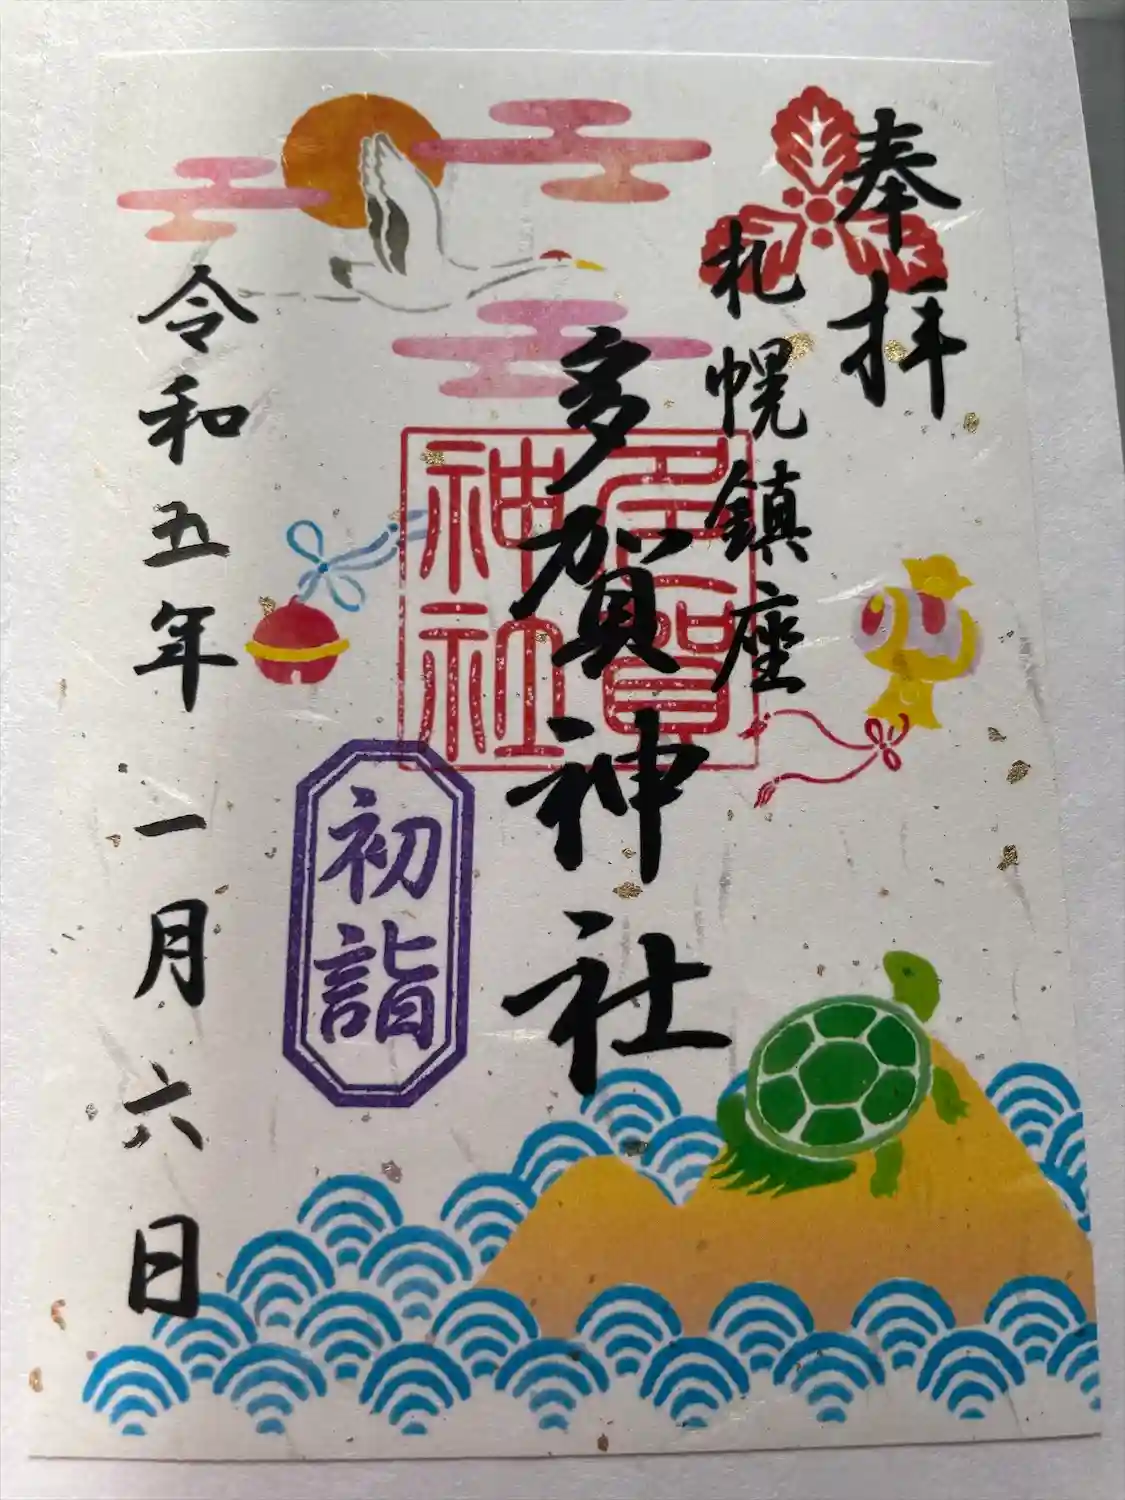 奉拝
札幌鎮座
多賀神社
多賀神社
初詣
令和五年一月六日